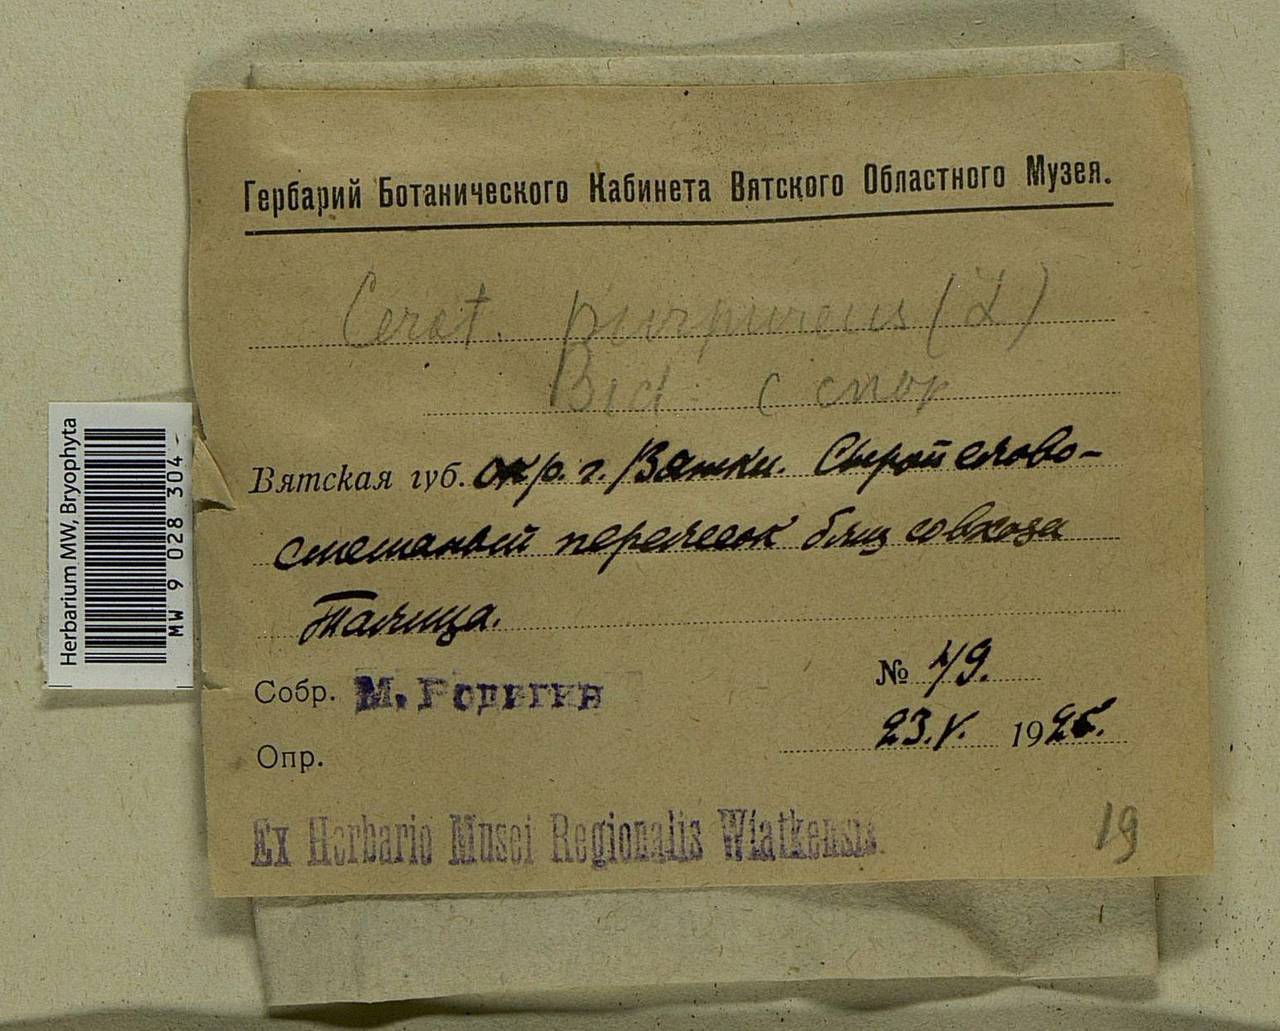 Гербарий Ботанического Кабинета Вятского Областного Музея.
Cerat. purpureus (L)
Brid. с спор
Вятская губ. окр. г. Вятки. Сырой елово-
смешаный перелесок близ совхоза
Талица.
Собр. М. Родыгин
№ 49.
23.V. 1925.
Опр.
Ex Herbario Musei Regionalis Wiatkensis
19
Herbarium MW, Bryophyta
MW 9 028 304